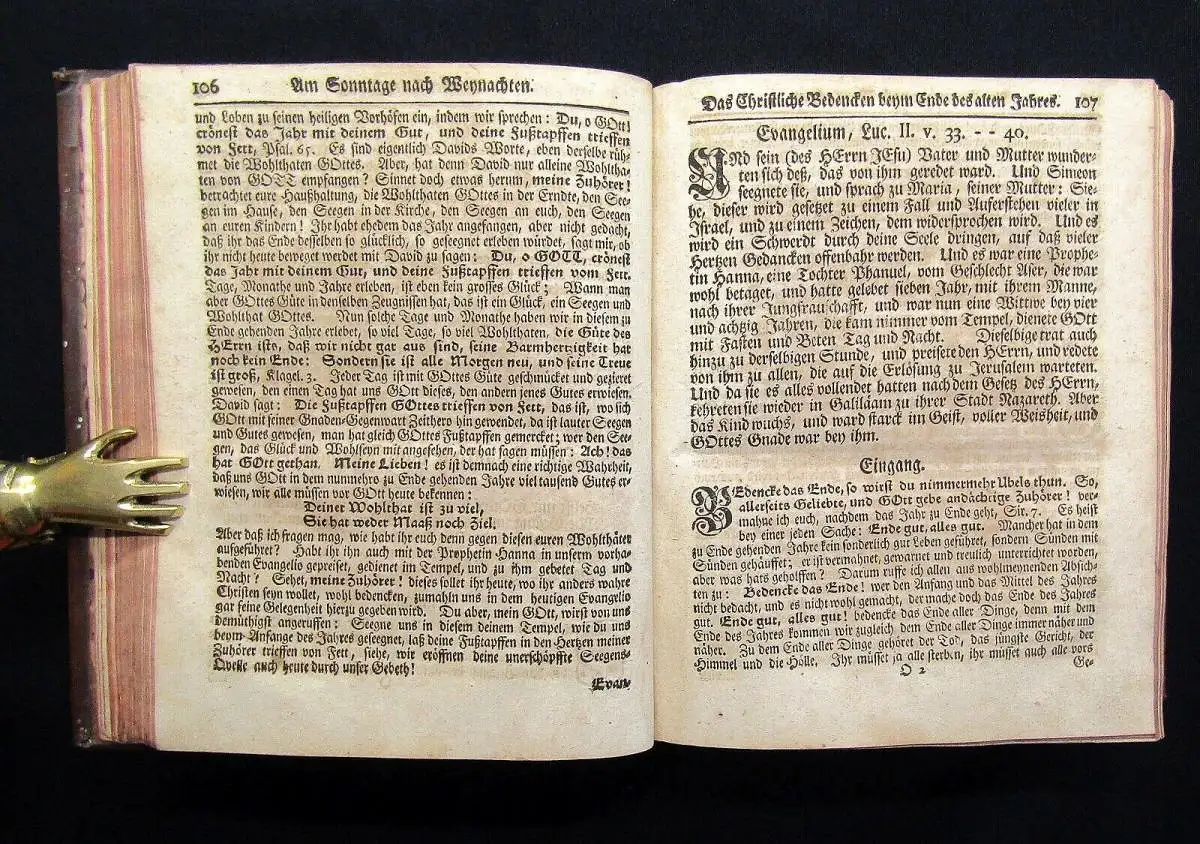 106 Am Sonntage nach Weynachten.
und Loben zu seinen heiligen Vorhöfen ein, indem wir sprechen: Du, o GOtt!
crönest das Jahr mit deinem Gut, und deine Fußtapffen trieffen
von Fett, Psal. 65. Es sind eigentlich Davids Worte, eben derselbe rüh-
met die Wohlthaten GOttes. Aber, hat denn David nur alleine Wohltha-
ten von GOTT empfangen? Sinnet doch etwas herum, meine Zuhörer!
betrachtet eure Haußhaltung, die Wohlthaten GOttes in der Erndte, den See-
gen im Hause, den Seegen in der Kirche, den Seegen an euch, den Seegen
an euren Kindern! Ihr habt ehedem das Jahr angefangen, aber nicht gedacht,
daß ihr das Ende desselben so glücklich, so geseegnet erleben würdet, sagt mir, ob
ihr nicht heute beweget werdet mit David zu sagen: Du, o GOTT, crönest
das Jahr mit deinem Gut, und deine Fußtapffen trieffen vom Fett.
Tage, Monathe und Jahre erleben, ist eben kein grosses Glück; Wann man
aber GOttes Güte in denselben Zeugnissen hat, das ist ein Glück, ein Seegen und
Wohlthat GOttes. Nun solche Tage und Monathe haben wir in diesem zu
Ende gehenden Jahre erlebet, so viel Tage, so viel Wohlthaten, die Güte des
HErrn ists, daß wir nicht gar aus sind, seine Barmhertzigkeit hat
noch kein Ende: Sondern sie ist alle Morgen neu, und seine Treue
ist groß, Klagel. 3. Jeder Tag ist mit GOttes Güte geschmücket und gezieret
gewesen, den einen Tag hat uns GOtt dieses, den andern jenes Gutes erwiesen.
David sagt: Die Fußtapffen GOttes trieffen von Fett, das ist, wo sich
GOtt mit seiner Gnaden-Gegenwart Zeithero hin gewendet, da ist lauter Seegen
und Gutes gewesen, man hat gleich GOttes Fußtapffen gemercket; wer den See-
gen, das Glück und Wohlseyn mit angesehen, der hat sagen müssen: Ach! das
hat GOtt gethan. Meine Lieben! es ist demnach eine richtige Wahrheit,
daß uns GOtt in dem nunmehro zu Ende gehenden Jahre viel tausend Gutes er-
wiesen, wir alle müssen vor GOtt heute bekennen:
Deiner Wohlthat ist zu viel,
Sie hat weder Maaß noch Ziel.
Aber daß ich fragen mag, wie habt ihr euch denn gegen diesen euren Wohlthäter
aufgeführet? Habt ihr ihn auch mit der Prophetin Hanna in unserm vorha-
benden Evangelio gepreiset, gedienet im Tempel, und zu ihm gebetet Tag und
Nacht? Sehet, meine Zuhörer! dieses sollet ihr heute, wo ihr anders wahre
Christen seyn wollet, wohl bedencken, zumahln uns in dem heutigen Evangelio
gar feine Gelegenheit hierzu gegeben wird. Du aber, mein GOtt, wirst von uns
demüthigst angeruffen: Seegne uns in diesem deinem Tempel, wie du uns
beym Anfange des Jahres geseegnet, laß deine Fußtapffen in den Hertzen meiner
Zuhörer trieffen von Fett, siehe, wir eröffnen deine unerschöpffte Seegens-
Qvelle auch heute durch unser Gebeth!
Evan-
Das Christliche Bedencken beym Ende des alten Jahres. 107
Evangelium, Luc. II. v. 33. - - 40.
UNd sein (des HErrn JEsu) Vater und Mutter wunder-
ten sich deß, das von ihm geredet ward. Und Simeon
seegnete sie, und sprach zu Maria, seiner Mutter: Sie-
he, dieser wird gesetzet zu einem Fall und Auferstehen vieler in
Israel, und zu einem Zeichen, dem widersprochen wird. Und es
wird ein Schwerdt durch deine Seele dringen, auf daß vieler
Hertzen Gedancken offenbahr werden. Und es war eine Prophe-
tin Hanna, eine Tochter Phanuel, vom Geschlecht Aser, die war
wohl betaget, und hatte gelebet sieben Jahr, mit ihrem Manne,
nach ihrer Jungfrauschafft, und war nun eine Wittwe bey vier
und achtzig Jahren, die kam nimmer vom Tempel, dienete GOtt
mit Fasten und Beten Tag und Nacht. Dieselbige trat auch
hinzu zu derselbigen Stunde, und preisete den HErrn, und redete
von ihm zu allen, die auf die Erlösung zu Jerusalem warteten.
Und da sie es alles vollendet hatten nach dem Gesetz des HErrn,
kehreten sie wieder in Galiläam zu ihrer Stadt Nazareth. Aber
das Kind wuchs, und ward starck im Geist, voller Weisheit, und
GOttes Gnade war bey ihm.
Eingang.
BEdencke das Ende, so wirst du nimmermehr Ubels thun. So,
allerseits Geliebte, und GOtt gebe andächtige Zuhörer! ver-
mahne ich euch, nachdem das Jahr zu Ende geht, Sir. 7. Es heist
bey einer jeden Sache: Ende gut, alles gut. Mancher hat in dem
zu Ende gehenden Jahre kein sonderlich gut Leben geführet, sondern Sünden mit
Sünden gehäuffet; er ist vermahnet, gewarnet und treulich unterrichtet worden,
aber was hats geholffen? Darum ruffe ich allen aus wohlmeynenden Absich-
ten zu: Bedencke das Ende! wer den Anfang und das Mittel des Jahres
nicht bedacht, und es nicht wohl gemacht, der mache doch das Ende des Jahres
gut. Ende gut, alles gut! bedencke das Ende aller Dinge, denn mit dem
Ende des Jahres kommen wir zugleich dem Ende aller Dinge immer näher und
näher. Zu dem Ende aller Dinge gehöret der Tod, das jüngste Gericht, der
Himmel und die Hölle. Ihr müsset ja alle sterben, ihr müsset auch alle vors
O 2 Ge-